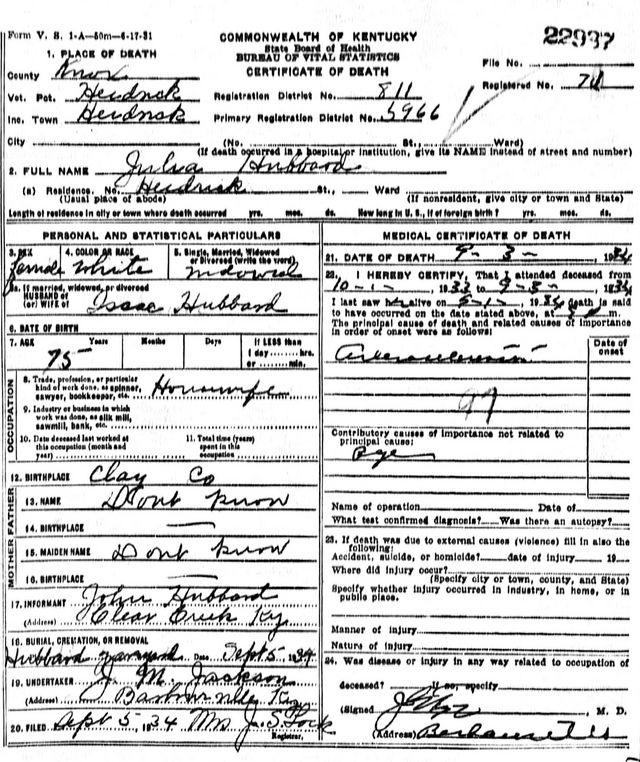 Form V. S. 1-A—50m—6-17-31
COMMONWEALTH OF KENTUCKY
State Board of Health
BUREAU OF VITAL STATISTICS
CERTIFICATE OF DEATH
22937
File No.
Registered No. 70
1. PLACE OF DEATH
County Knox
Vot. Pct. Heidrick
Inc. Town Heidrick
Registration District No. 811
Primary Registration District No. 5966
City (No. St., Ward)
(If death occurred in a hospital or institution, give its NAME instead of street and number)
2. FULL NAME Julia Hubbard
(a) Residence. No. Heidrick St., Ward
(Usual place of abode) (If nonresident, give city or town and State)
Length of residence in city or town where death occurred yrs. mos. ds. How long in U. S., if of foreign birth? yrs. mos. ds.
PERSONAL AND STATISTICAL PARTICULARS
3. SEX Female
4. COLOR OR RACE White
5. Single, Married, Widowed
or Divorced (write the word)
Widowed
5a. If married, widowed, or divorced
HUSBAND of
(or) WIFE of Isaac Hubbard
6. DATE OF BIRTH
7. AGE 75 Years Months Days If LESS than
1 day hrs.
or min.
OCCUPATION
8. Trade, profession, or particular
kind of work done, as spinner,
sawyer, bookkeeper, etc. Housewife
9. Industry or business in which
work was done, as silk mill,
sawmill, bank, etc.
10. Date deceased last worked at
this occupation (month and
year)
11. Total time (years)
spent in this
occupation
12. BIRTHPLACE Clay Co
FATHER
13. NAME Dont know
14. BIRTHPLACE —
MOTHER
15. MAIDEN NAME Dont know
16. BIRTHPLACE —
17. INFORMANT John Hubbard
(Address) Clear Creek Ky
18. BURIAL, CREMATION, OR REMOVAL
Hubbard Date Sept 5 1934
19. UNDERTAKER J. M. Jackson
(Address) Barbourville Ky
20. FILED Sept 5, 1934 Mrs J. S. Lock
Registrar.
MEDICAL CERTIFICATE OF DEATH
21. DATE OF DEATH 9-3-, 1934
22. I HEREBY CERTIFY, That I attended deceased from
10-1-, 1933 to 9-3-, 1934
I last saw her alive on 9-1-, 1934 death is said
to have occurred on the date stated above, at m.
The principal cause of death and related causes of importance
in order of onset were as follows:
Date of
onset
97
Contributory causes of importance not related to
principal cause:
Age
Name of operation Date of
What test confirmed diagnosis? Was there an autopsy?
23. If death was due to external causes (violence) fill in also the
following:
Accident, suicide, or homicide? date of injury 19
Where did injury occur?
(Specify city or town, county, and State)
Specify whether injury occurred in industry, in home, or in
public place.
Manner of injury
Nature of injury
24. Was disease or injury in any way related to occupation of
deceased? If so, specify
(Signed) , M. D.
(Address)